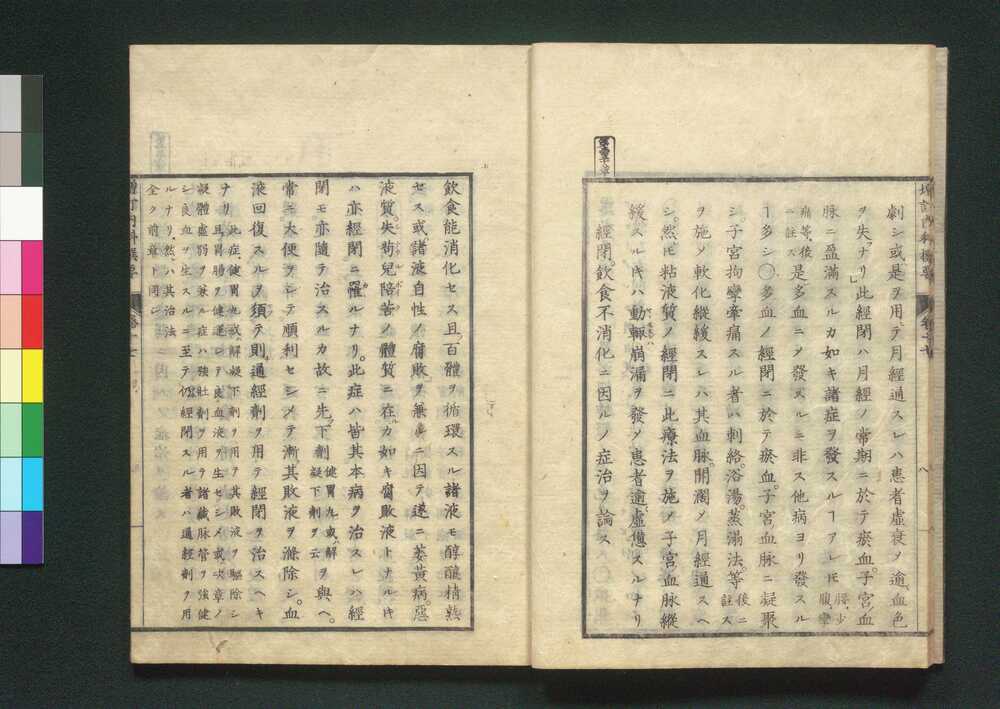 劇シ或ハ是ヲ用テ月經通スレハ患者虛衰メ逾血色
ヲ失フナリ此經閉ハ月經ノ常期ニ於テ瘀血子宮血
脉ニ盈滿スルカ如キ諸症ヲ發スルヿアレㇳモ腰少腹攣
痛等後ニ註ス是多血ニメ發スルニ非ス他病ヨリ發スル
ヿ多シ〇多血ノ經閉ニ於テ瘀血子宮血脉ニ凝聚
シ子宮拘攣牽痛スル者ハ刺絡浴湯蒸溻法等後ニ註ス
ヲ施メ軟化縱緩スレハ其血脉開濶メ月經通スヘ
シ然ㇳモ粘液質ノ經閉ニ此療法ヲ施メ子宮血脉縱
緩スルㇳキハ動輙崩漏ヲ發メ患者逾虛憊スルナリ
經閉飮食不消化ニ因ルノ症治ヲ論ス
飮食能消化セス且百體ヲ循環スル諸液モ醇釀精熟
セス或諸液自性ノ腐敗ヲ兼ルニ因テ遂ニ萎黃病惡
液質失苟兒陪苦ノ體質ニ在カ如キ腐敗液トナルㇳキ
ハ亦經閉ニ罹ルナリ此症ハ皆其本病ヲ治スレハ經
閉モ亦隨テ治スルカ故ニ先下劑健胃丸或ハ解凝下劑ヲ云ヲ與ヘ
常ニ大便ヲシテ順利セシメテ漸其敗液ヲ滌除シ血
液回復スルヲ須テ則通經劑ヲ用テ經閉ヲ治スヘキ
ナリ此症健胃丸或解凝下劑ヲ用テ其敗液ヲ驅除シ
且胃腸ヲ健運シテ良血液ヲ生セシメ或次章ノ
凝體虛弱ヲ兼ル症ハ強壯劑ヲ用テ諸藏脉管ヲ強健ニ
シ良血ヲ生スルニ至テ仍經閉スル者ハ通經劑ヲ用
ルナリ然ㇳハ其治法
全ク前章ト同シ